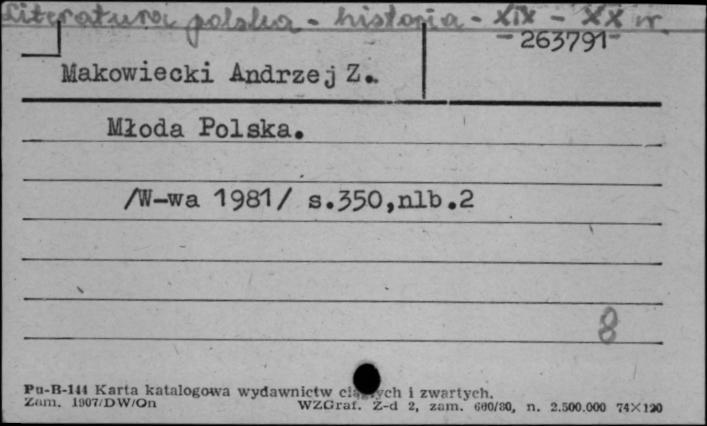 Literatura polska - historia - XIX - XX w.
- 263791 -
Makowiecki Andrzej Z.
Młoda Polska.
/W-wa 1981/ s.350,nlb.2
8
Pu-B-144 Karta katalogowa wydawnictw ciągłych i zwartych.
Zam. 1907/DW/On WZGraf. Z-d 2, zam. 600/80, n. 2.500.000 74×120